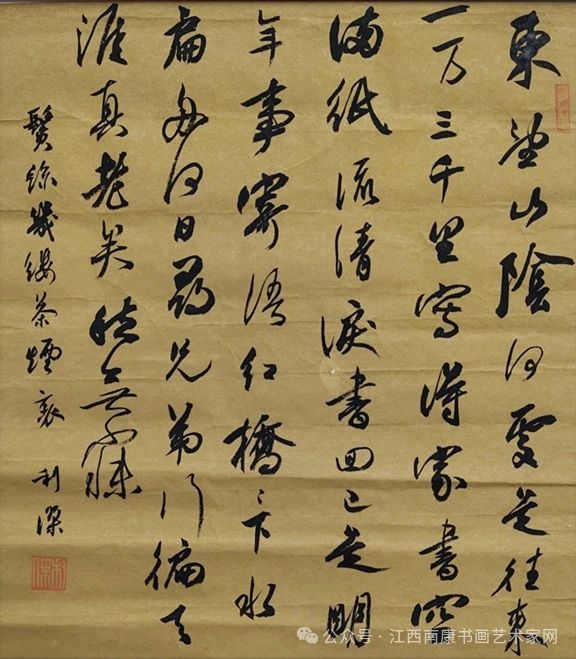 東望山陰何處是往來
一万三千里寫得家書空
滿紙流清淚書回已是明
年事寄語紅橋〻下水
扁舟何日尋兄弟行徧天
涯真老矣愁無寐
鬢絲幾縷茶煙裏 利深
公众号 · 江西南康书画艺术家网